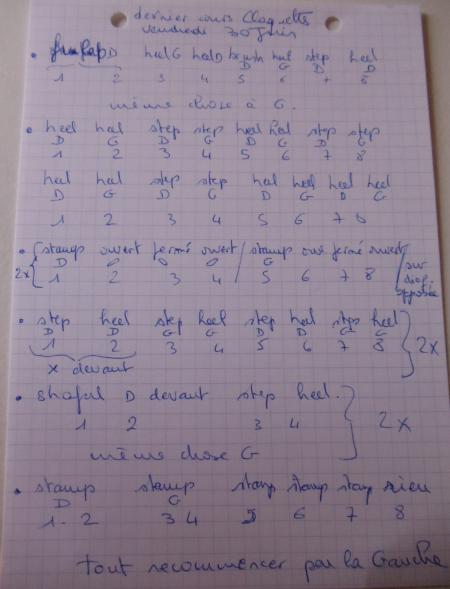 dernier cours Claquettes
vendredi 30 Juin
• flap D heel G heel D brush heel step heel
D G D D
1 2 3 4 5 6 7 8
même chose à G.
• heel heel step step heel heel step step
D G D G D G D G
1 2 3 4 5 6 7 8
heel heel step step heel heel heel heel
D G D G D G D G
1 2 3 4 5 6 7 8
• stamp ouvert fermé ouvert / stamp ouv. fermé ouvert
D G
2x 1 2 3 4 5 6 7 8 sur diag. opposée
• step heel step heel step heel step heel
D D G G D D G G
1 2 3 4 5 6 7 8 2x
x devant
• shaful D devant step heel.
1 2 3 4 2x
même chose G
• stamp stamp stamp stamp stamp rien
D G
1 - 2 3 4 5 6 7 8
tout recommencer par la Gauche